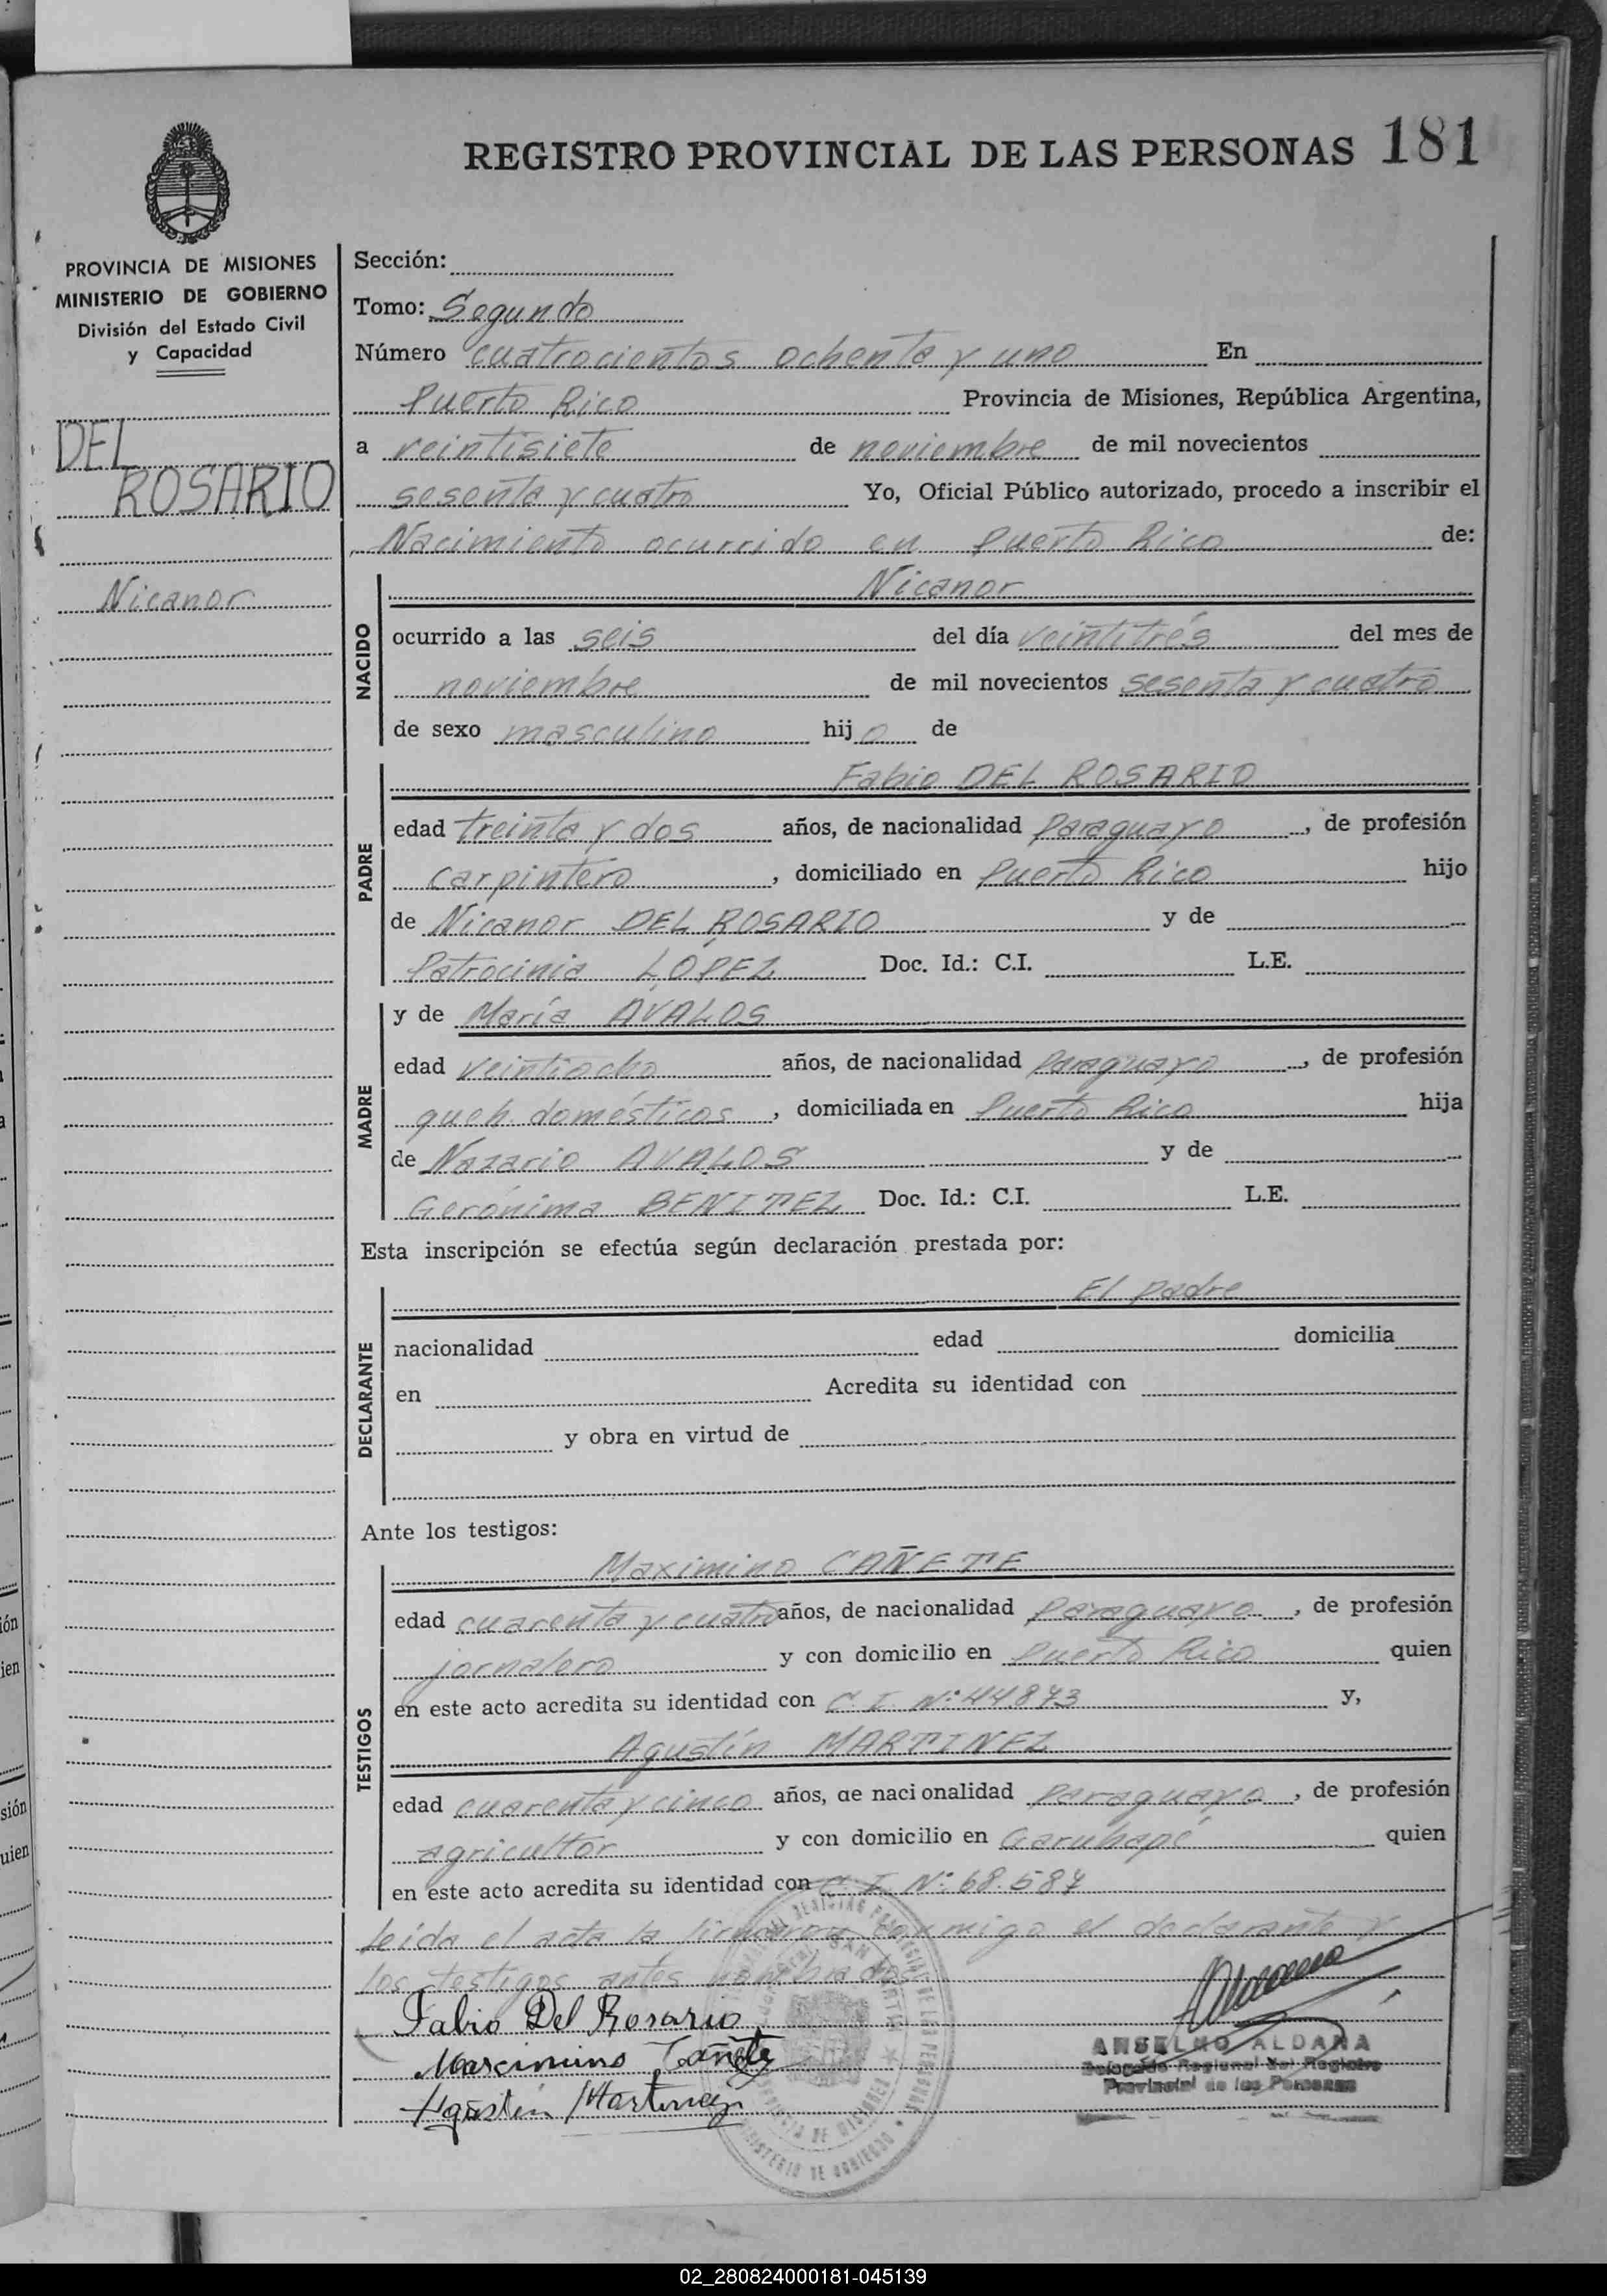 REGISTRO PROVINCIAL DE LAS PERSONAS 181
PROVINCIA DE MISIONES
MINISTERIO DE GOBIERNO
División del Estado Civil
y Capacidad
DEL
ROSARIO
Nicanor
Sección:
Tomo: Segundo
Número cuatrocientos ochenta y uno En
Puerto Rico Provincia de Misiones, República Argentina,
a veintisiete de noviembre de mil novecientos
sesenta y cuatro Yo, Oficial Público autorizado, procedo a inscribir el
Nacimiento ocurrido en Puerto Rico de:
NACIDO
Nicanor
ocurrido a las seis del día veintitrés del mes de
noviembre de mil novecientos sesenta y cuatro
de sexo masculino hijo de
PADRE
Fabio DEL ROSARIO
edad treinta y dos años, de nacionalidad paraguayo, de profesión
carpintero, domiciliado en Puerto Rico hijo
de Nicanor DEL ROSARIO y de
Patrocinia LÓPEZ Doc. Id.: C.I. L.E.
MADRE
y de María AVALOS
edad veintiocho años, de nacionalidad paraguaya, de profesión
queh. domésticos, domiciliada en Puerto Rico hija
de Nazario AVALOS y de
Gerónima BENITEZ Doc. Id.: C.I. L.E.
Esta inscripción se efectúa según declaración prestada por:
DECLARANTE
El padre
nacionalidad edad domicilia
en Acredita su identidad con
y obra en virtud de
Ante los testigos:
TESTIGOS
Maximino CAÑETE
edad cuarenta y cuatro años, de nacionalidad paraguayo, de profesión
jornalero y con domicilio en Puerto Rico quien
en este acto acredita su identidad con C. I. Nº: 44.873 y,
Agustín MARTINEZ
edad cuarenta y cinco años, de nacionalidad paraguayo, de profesión
agricultor y con domicilio en Garuhapé quien
en este acto acredita su identidad con C. I. Nº: 68.587
Leída el acta la firmaron conmigo el declarante y
los testigos antes nombrados
Fabio Del Rosario
Marcimino Cañete
Agustin Martinez
ANSELMO ALDANA
Delegado Regional del Registro
Provincial de las Personas
02_280824000181-045139